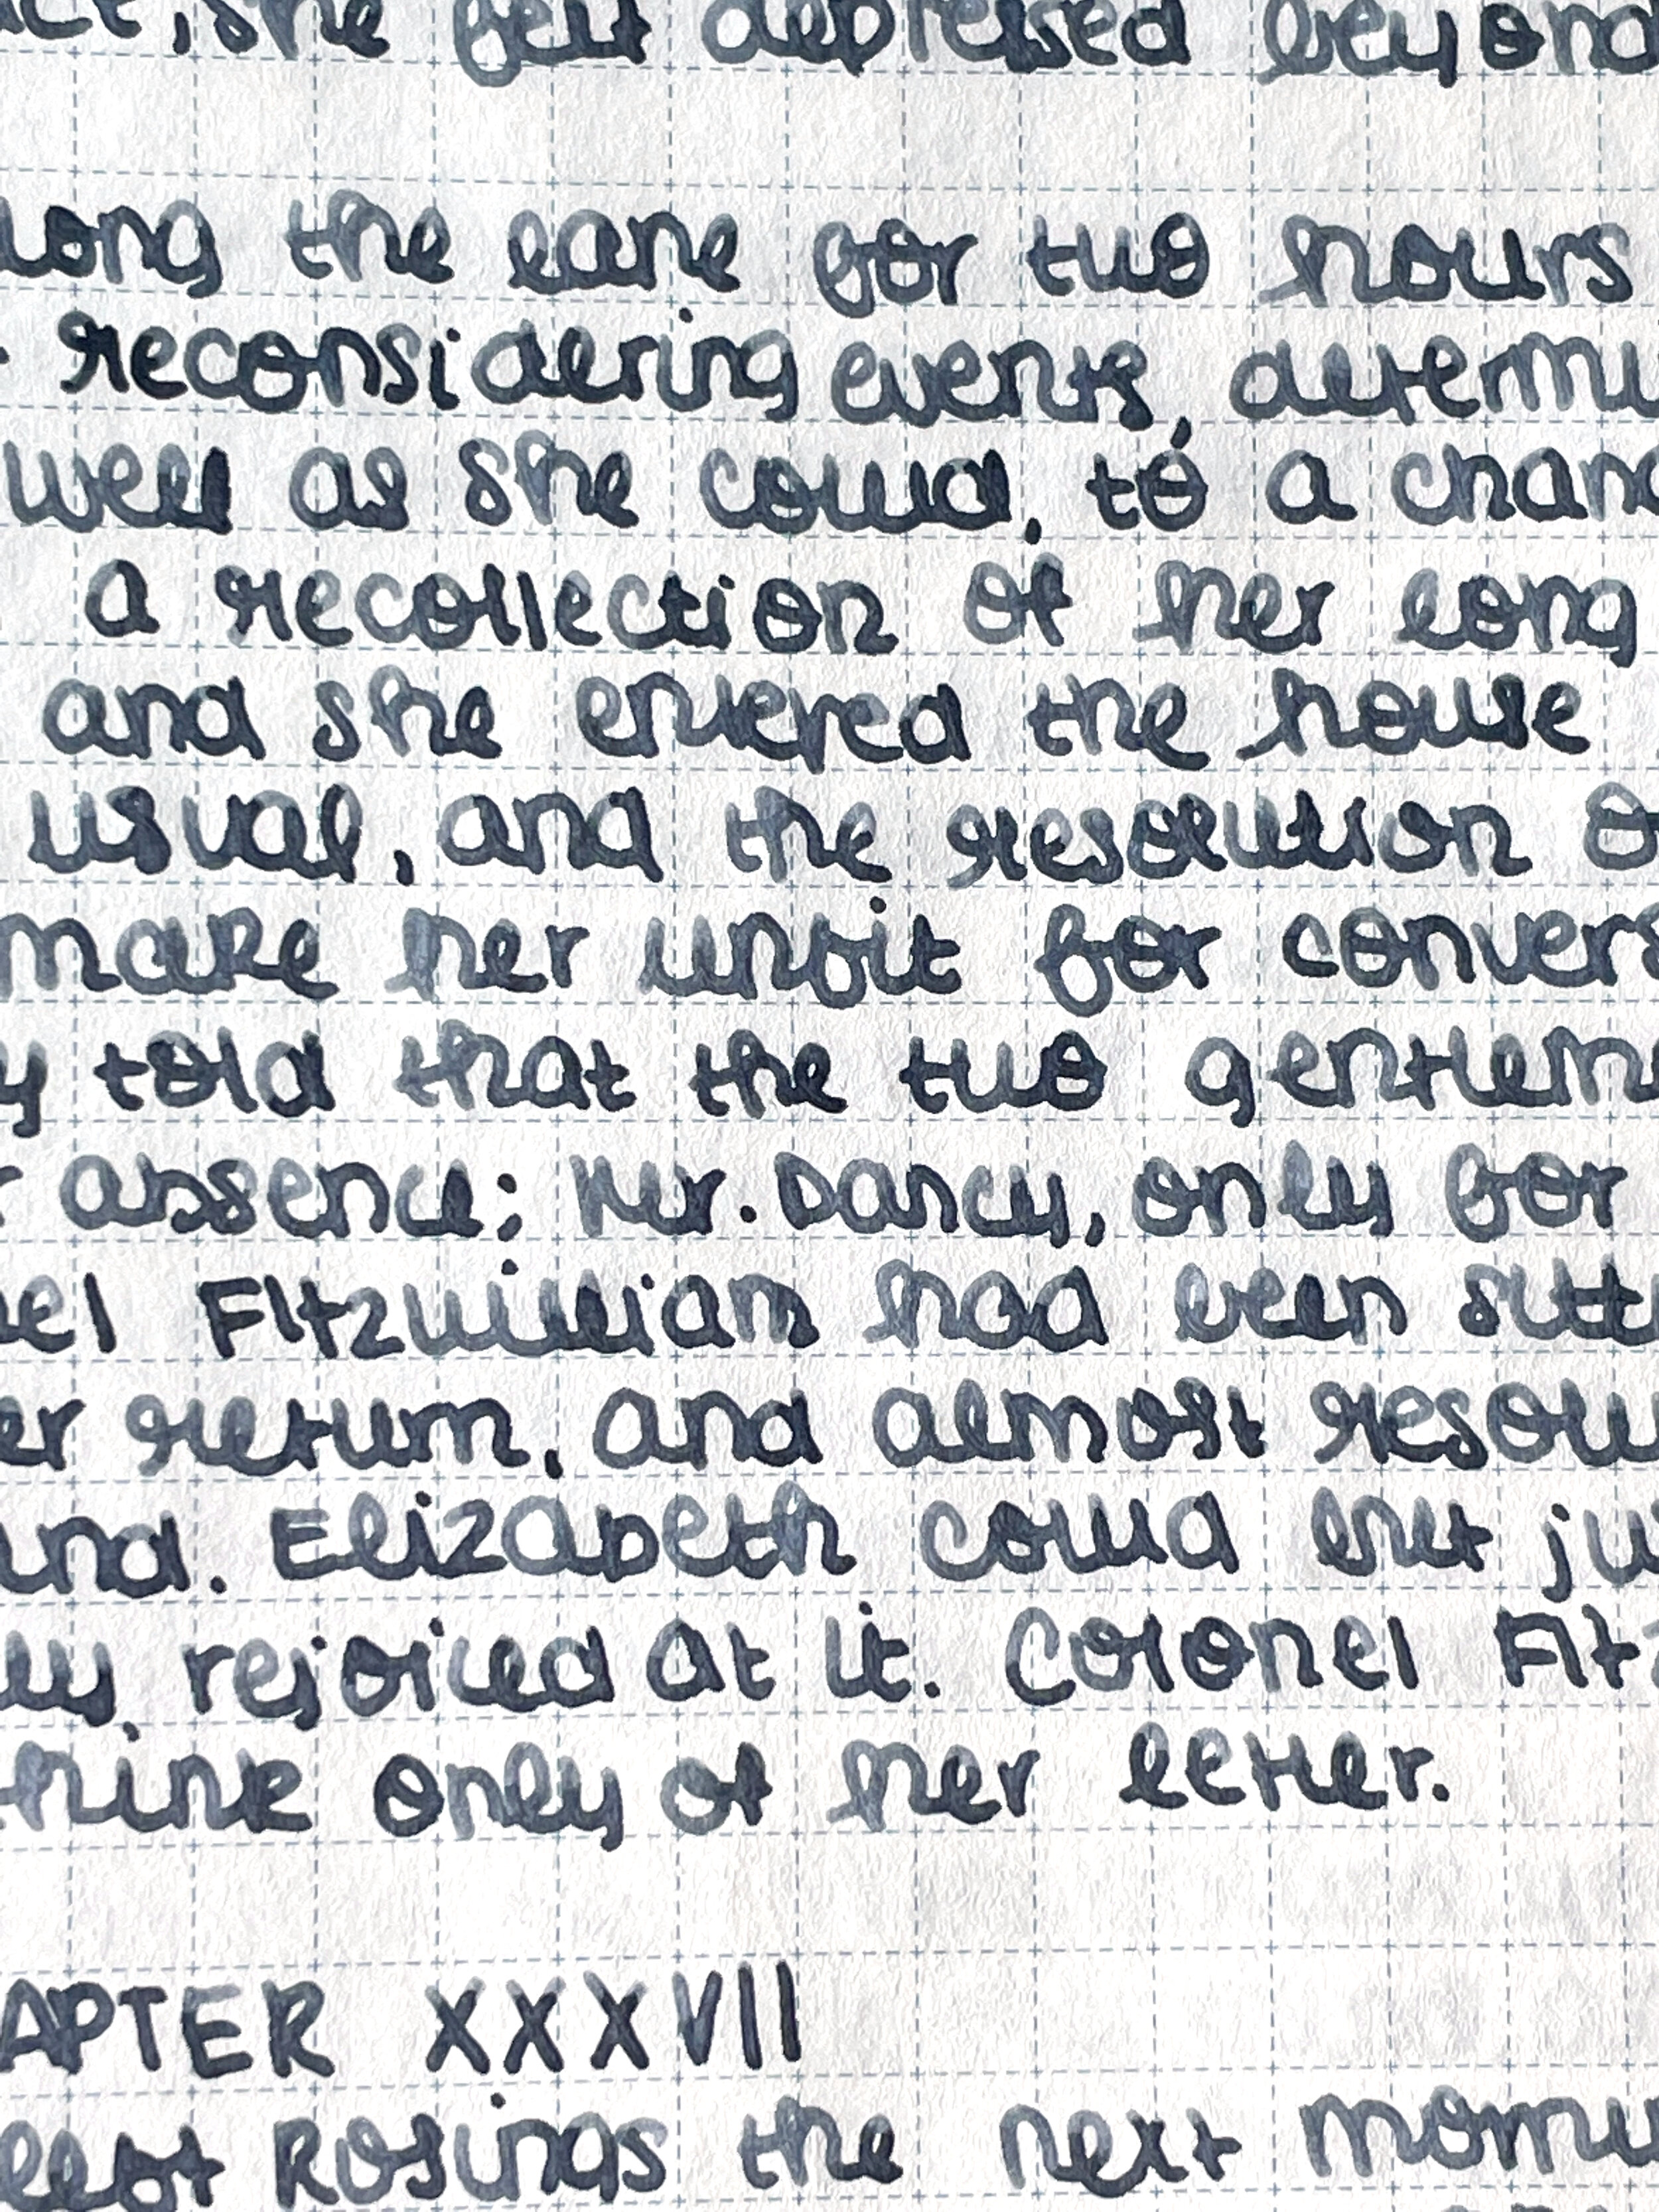 act, she felt depressed beyond
long the lane for two hours
reconsidering events, determi
well as she could, to a chang
a recollection of her long
and she entered the house
usual, and the resolution o
make her unfit for convers
y told that the two gentleme
r absence; Mr. Darcy, only for
nel Fitzwilliam had been sitti
er return, and almost resolv
und. Elizabeth could but ju
lly rejoiced at it. Colonel Fitz
think only of her letter.
APTER XXXVII
left Rosings the next morni